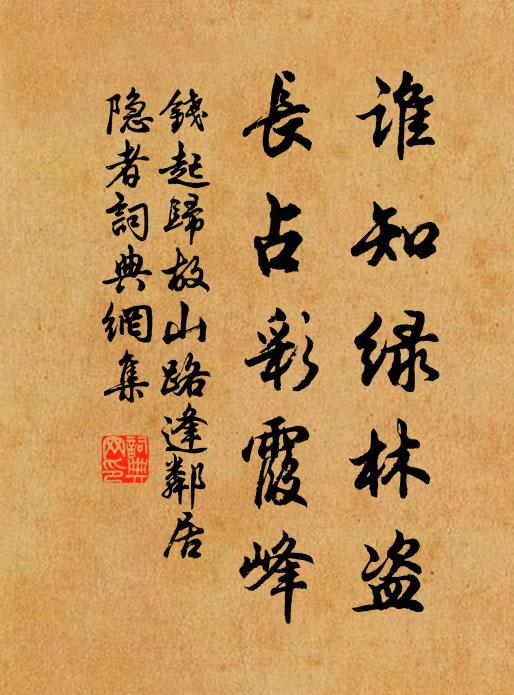 谁知绿林盗
長占彩霞峰
錢起歸故山路逢鄰居
隐者詞典網集
詞典网印